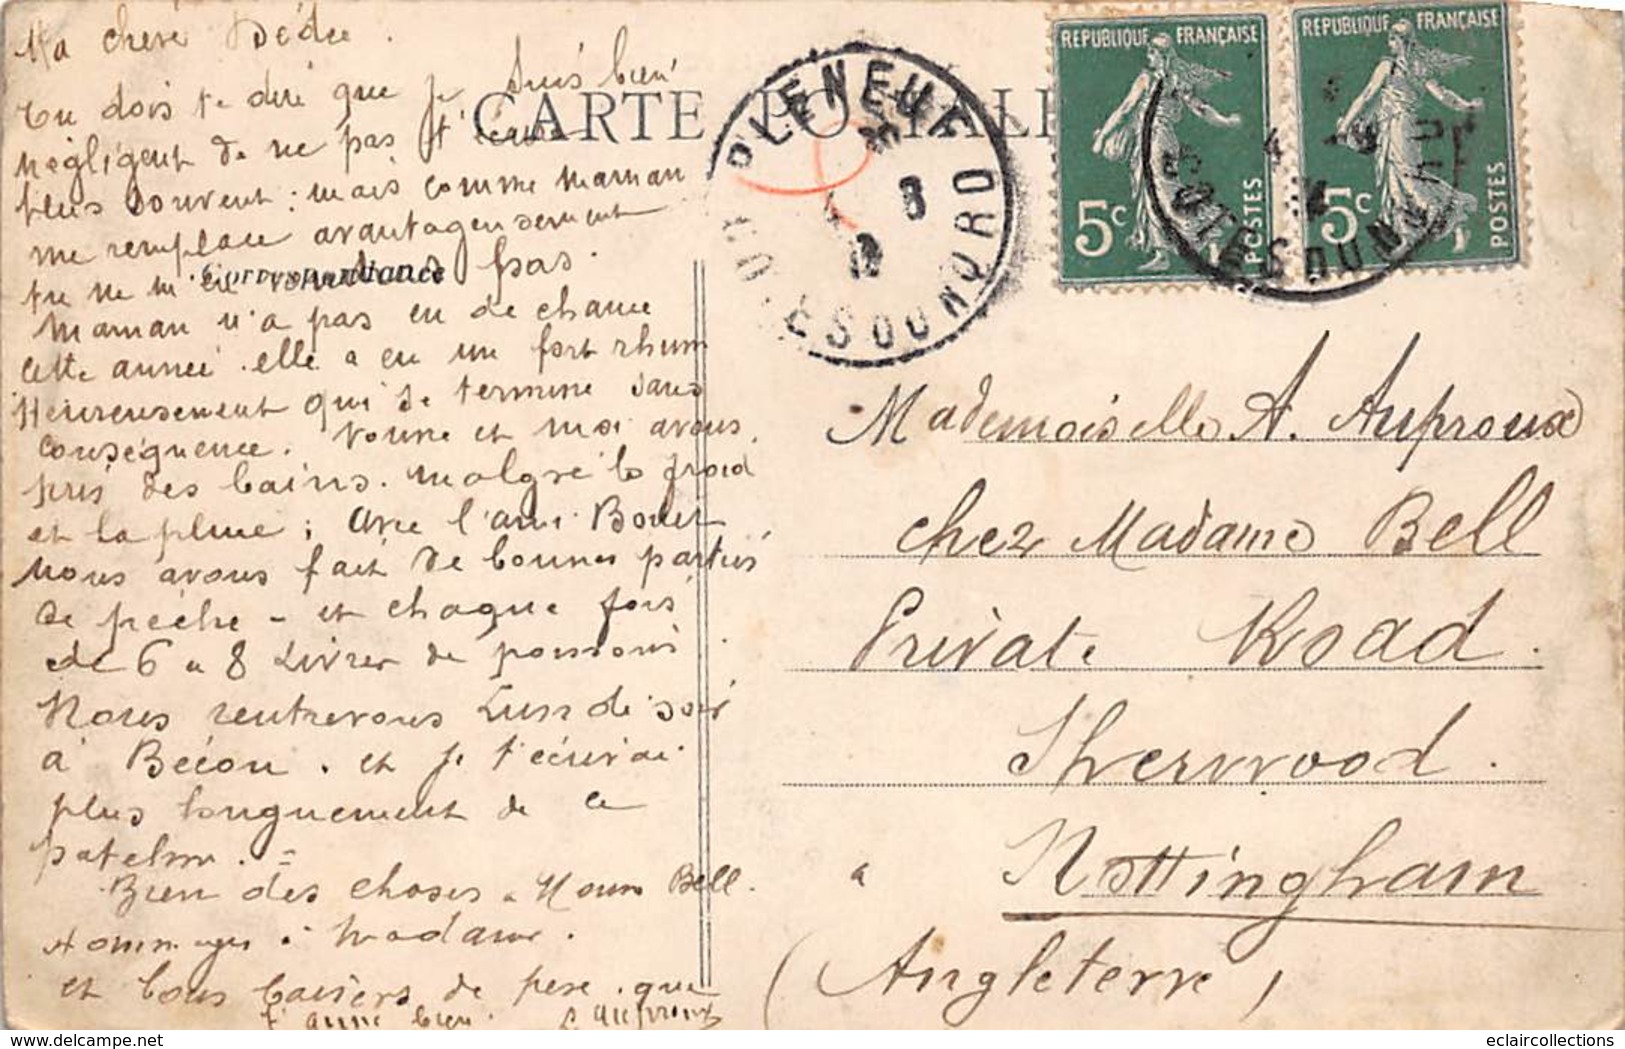 Ma chère Dédée.
Tu dois te dire que je suis bien
négligent de ne pas t'écrire
plus souvent : mais comme maman
me remplace avantageusement
tu ne m'en voudras pas.
Maman n'a pas eu de chance
cette année. elle a eu un fort rhume
Heureusement qui se termine sans
conséquence. et moi avons
pris des bains. malgré le froid
et la pluie ; avec l'ami Bouet
nous avons fait de bonnes parties
de pêche - et chaque fois
de 6 a 8 Livres de poissons
Nous rentrerons Lundi soir
à Bécon. et je t'écrirai
plus longuement de ce
patelin. =
Bien des choses a Bell.
Hommages à madame.
et bons baisers de père. qui
t'aime bien. L Auproux
CARTE POSTALE
Correspondance
PLENEUF
COTES DU NORD
4 8
12
REPUBLIQUE FRANÇAISE
5c
POSTES
REPUBLIQUE FRANÇAISE
5c
POSTES
COTES DU NORD
Mademoiselle A. Auproux
chez Madame Bell
Private Road.
Sherwood.
a Nottingham
(Angleterre)
eclaircollections
www.delcampe.net